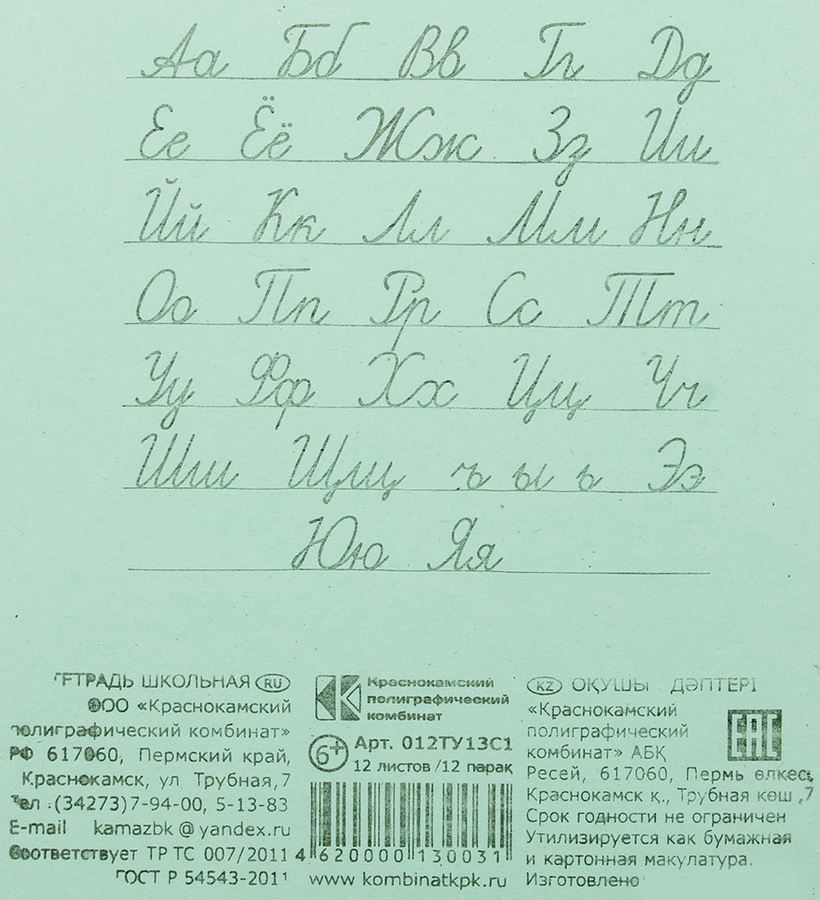 Аа Бб Вв Гг Дд
Ее Ёё Жж Зз Ии
Йй Кк Лл Мм Нн
Оо Пп Рр Сс Тт
Уу Фф Хх Цц Чч
Шш Щщ ъ ы ь Ээ
Юю Яя
ТЕТРАДЬ ШКОЛЬНАЯ RU
ООО «Краснокамский
полиграфический комбинат»
РФ 617060, Пермский край,
Краснокамск, ул Трубная,7
Тел.:(34273)7-94-00, 5-13-83
E-mail kamazbk@yandex.ru
Соответствует ТР ТС 007/2011
ГОСТ Р 54543-2011
Краснокамский
полиграфический
комбинат
6+ Арт. 012ТУ13С1
12 листов /12 парақ
4 620000 130031
www kombinatkpk.ru
KZ ОҚУШЫ ДӘПТЕРІ
«Краснокамский
полиграфический
комбинат» АБҚ
EAC
Ресей, 617060, Пермь өлкесі,
Краснокамск қ., Трубная көш ,7
Срок годности не ограничен
Утилизируется как бумажная
и картонная макулатура.
Изготовлено